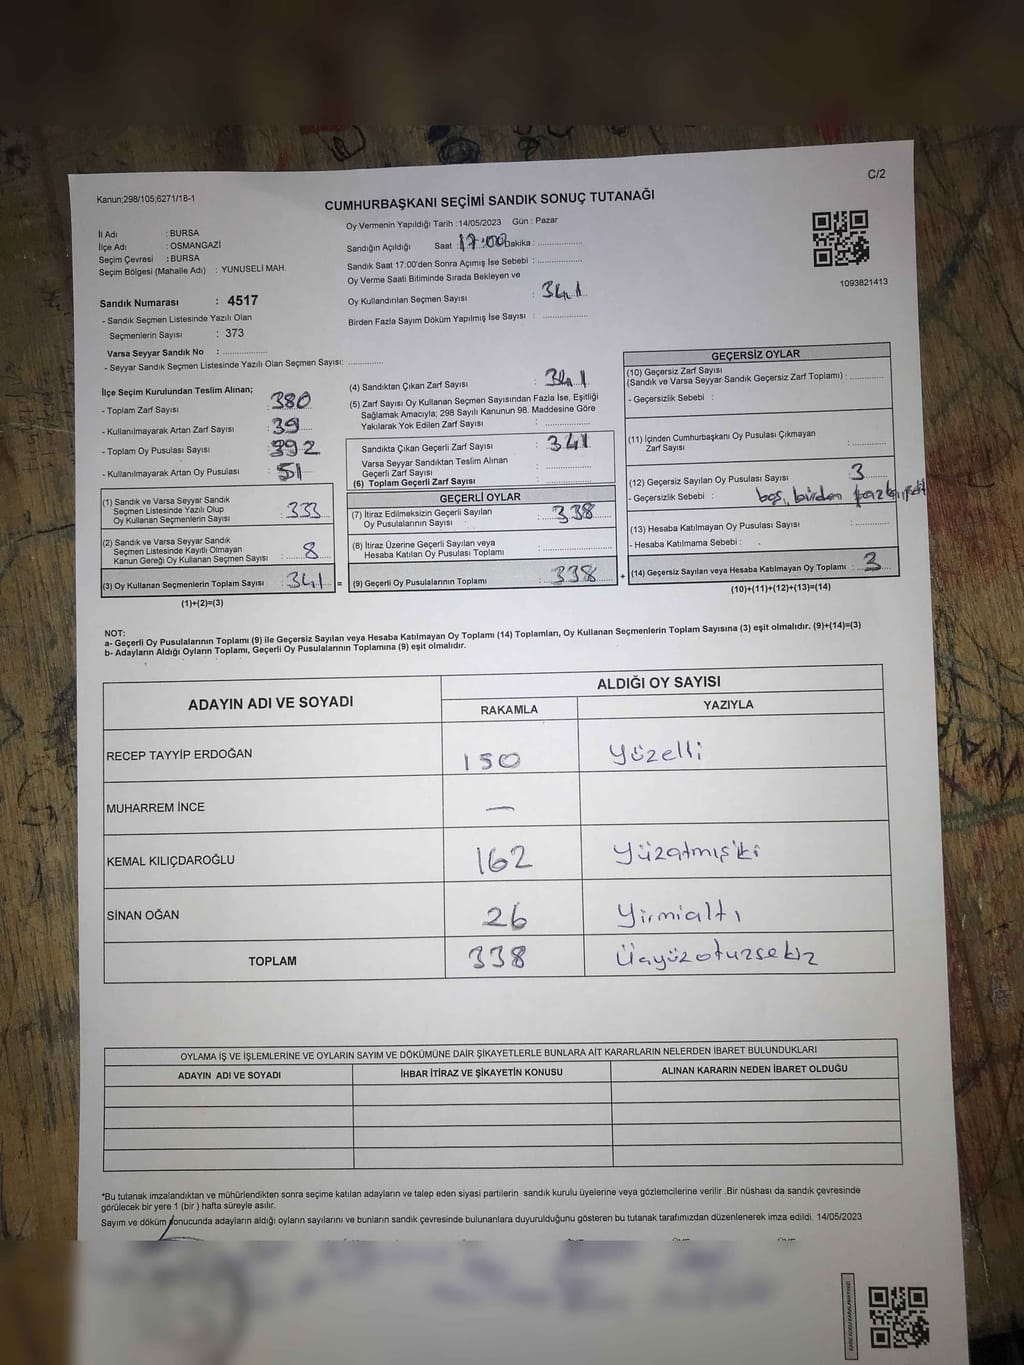 C/2
Kanun;298/105;6271/18-1
CUMHURBAŞKANI SEÇİMİ SANDIK SONUÇ TUTANAĞI
İl Adı : BURSA
İlçe Adı : OSMANGAZİ
Seçim Çevresi : BURSA
Seçim Bölgesi (Mahalle Adı) : YUNUSELİ MAH.
Sandık Numarası : 4517
- Sandık Seçmen Listesinde Yazılı Olan
Seçmenlerin Sayısı : 373
Varsa Seyyar Sandık No : ................
- Seyyar Sandık Seçmen Listesinde Yazılı Olan Seçmen Sayısı: ............
Oy Vermenin Yapıldığı Tarih : 14/05/2023 Gün : Pazar
Sandığın Açıldığı Saat 17:00 Dakika : ...............
Sandık Saat 17.00'den Sonra Açımış İse Sebebi : ...............
Oy Verme Saati Bitiminde Sırada Bekleyen ve
Oy Kullandırılan Seçmen Sayısı : 341
Birden Fazla Sayım Döküm Yapılmış İse Sayısı : ...............
1093821413
İlçe Seçim Kurulundan Teslim Alınan;
- Toplam Zarf Sayısı : 380
- Kullanılmayarak Artan Zarf Sayısı : 39
- Toplam Oy Pusulası Sayısı : 392
- Kullanılmayarak Artan Oy Pusulası : 51
(1) Sandık ve Varsa Seyyar Sandık
Seçmen Listesinde Yazılı Olup
Oy Kullanan Seçmenlerin Sayısı : 333
(2) Sandık ve Varsa Seyyar Sandık
Seçmen Listesinde Kayıtlı Olmayan
Kanun Gereği Oy Kullanan Seçmen Sayısı : 8
(3) Oy Kullanan Seçmenlerin Toplam Sayısı : 341 =
(1)+(2)=(3)
(4) Sandıktan Çıkan Zarf Sayısı : 341
(5) Zarf Sayısı Oy Kullanan Seçmen Sayısından Fazla İse, Eşitliği
Sağlamak Amacıyla; 298 Sayılı Kanunun 98. Maddesine Göre
Yakılarak Yok Edilen Zarf Sayısı : ...............
Sandıkta Çıkan Geçerli Zarf Sayısı : 341
Varsa Seyyar Sandıktan Teslim Alınan
Geçerli Zarf Sayısı : ...............
(6) Toplam Geçerli Zarf Sayısı : ...............
GEÇERLİ OYLAR
(7) İtiraz Edilmeksizin Geçerli Sayılan
Oy Pusulalarının Sayısı : 338
(8) İtiraz Üzerine Geçerli Sayılan veya
Hesaba Katılan Oy Pusulası Toplamı : ...............
(9) Geçerli Oy Pusulalarının Toplamı : 338 +
GEÇERSİZ OYLAR
(10) Geçersiz Zarf Sayısı
(Sandık ve Varsa Seyyar Sandık Geçersiz Zarf Toplamı) : ............
- Geçersizlik Sebebi :
(11) İçinden Cumhurbaşkanı Oy Pusulası Çıkmayan
Zarf Sayısı : ............
(12) Geçersiz Sayılan Oy Pusulası Sayısı : 3
- Geçersizlik Sebebi : boş, birden
(13) Hesaba Katılmayan Oy Pusulası Sayısı : ............
- Hesaba Katılmama Sebebi :
(14) Geçersiz Sayılan veya Hesaba Katılmayan Oy Toplamı : 3
(10)+(11)+(12)+(13)=(14)
NOT:
a- Geçerli Oy Pusulalarının Toplamı (9) ile Geçersiz Sayılan veya Hesaba Katılmayan Oy Toplamı (14) Toplamları, Oy Kullanan Seçmenlerin Toplam Sayısına (3) eşit olmalıdır. (9)+(14)=(3)
b- Adayların Aldığı Oyların Toplamı, Geçerli Oy Pusulalarının Toplamına (9) eşit olmalıdır.
ADAYIN ADI VE SOYADI ALDIĞI OY SAYISI
RAKAMLA YAZIYLA
RECEP TAYYİP ERDOĞAN 150 Yüzelli
MUHARREM İNCE —
KEMAL KILIÇDAROĞLU 162 Yüzatmışiki
SİNAN OĞAN 26 Yirmialtı
TOPLAM 338 Üçyüzotuzsekiz
OYLAMA İŞ VE İŞLEMLERİNE VE OYLARIN SAYIM VE DÖKÜMÜNE DAİR ŞİKAYETLERLE BUNLARA AİT KARARLARIN NELERDEN İBARET BULUNDUKLARI
ADAYIN ADI VE SOYADI İHBAR İTİRAZ VE ŞİKAYETİN KONUSU ALINAN KARARIN NEDEN İBARET OLDUĞU
*Bu tutanak imzalandıktan ve mühürlendikten sonra seçime katılan adayların ve talep eden siyasi partilerin sandık kurulu üyelerine veya gözlemcilerine verilir .Bir nüshası da sandık çevresinde
görülecek bir yere 1 (bir ) hafta süreyle asılır.
Sayım ve döküm sonucunda adayların aldığı oyların sayılarını ve bunların sandık çevresinde bulunanlara duyurulduğunu gösteren bu tutanak tarafımızdan düzenlenerek imza edildi. 14/05/2023